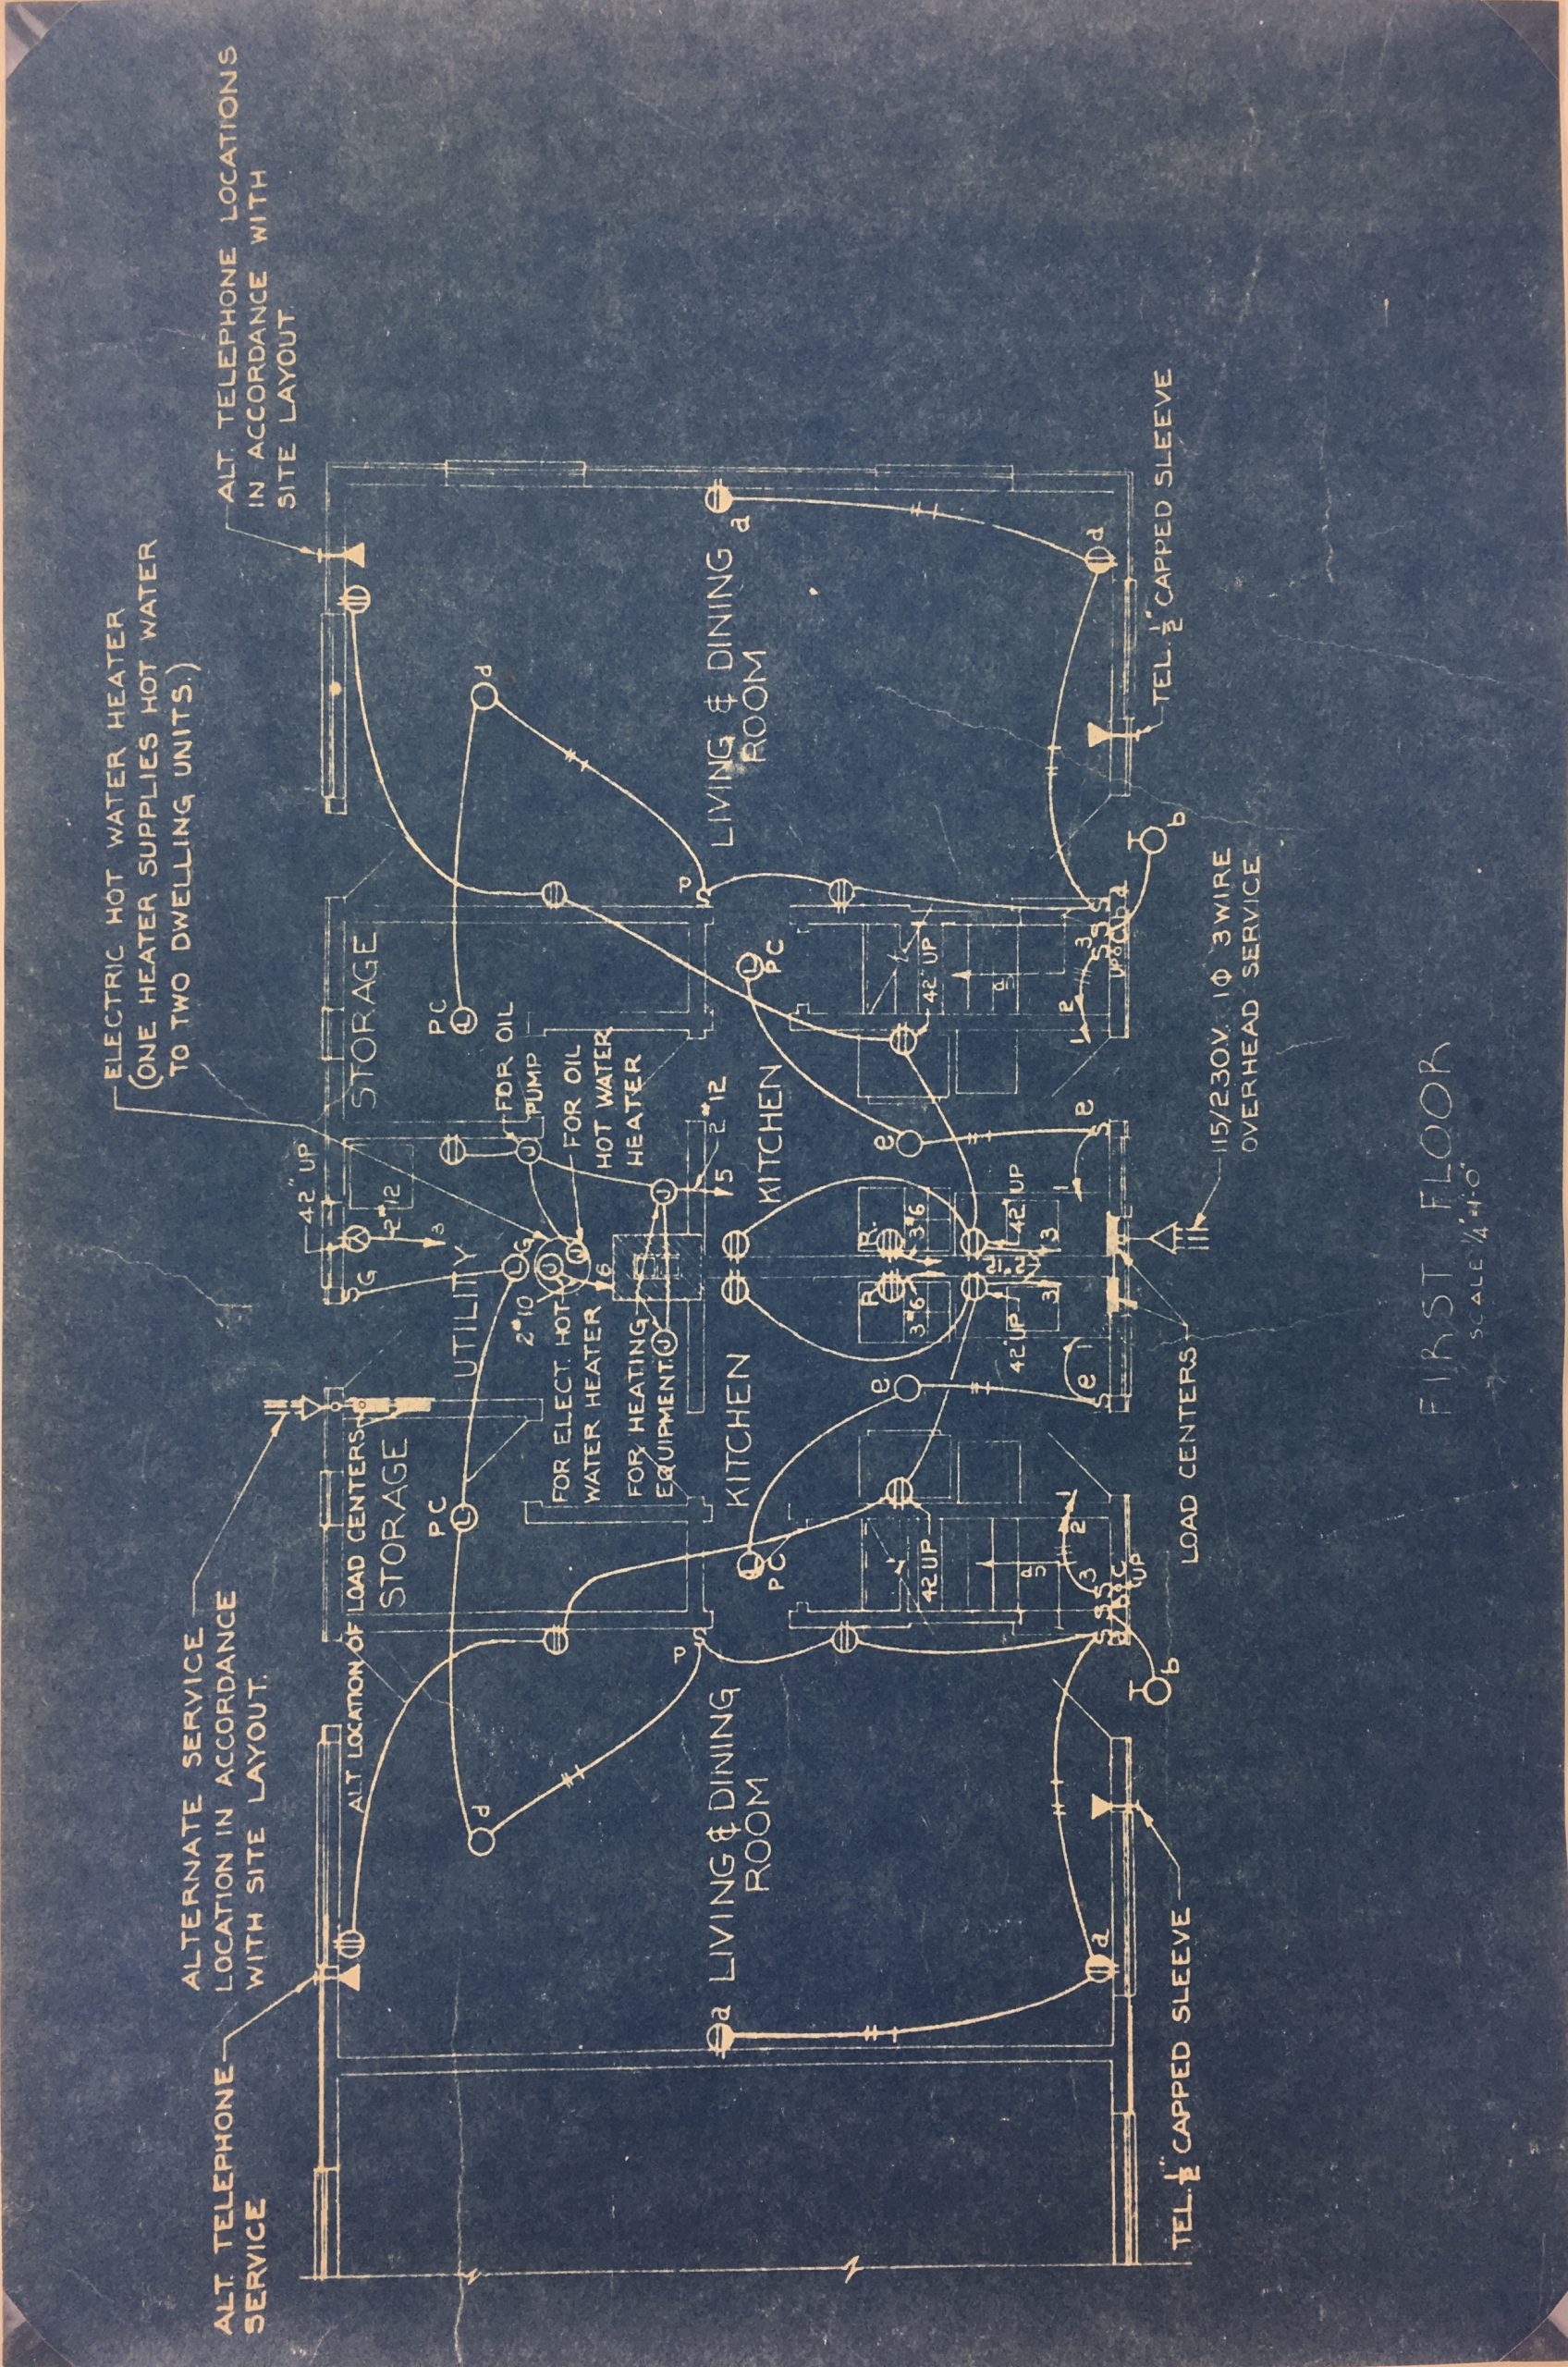 ALT. TELEPHONE
SERVICE
ALTERNATE SERVICE
LOCATION IN ACCORDANCE
WITH SITE LAYOUT.
ELECTRIC HOT WATER HEATER
(ONE HEATER SUPPLIES HOT WATER
TO TWO DWELLING UNITS.)
ALT. TELEPHONE LOCATIONS
IN ACCORDANCE WITH
SITE LAYOUT
ALT LOCATION OF LOAD CENTERS
STORAGE
PC
UTILITY
S
G
42" UP
2#12
3
STORAGE
PC
d
d
G
2#10
6
FOR ELECT. HOT
WATER HEATER
FOR HEATING
EQUIPMENT
FOR OIL
PUMP
FOR OIL
HOT WATER
HEATER
2#12
5
a
LIVING & DINING
ROOM
KITCHEN
KITCHEN
LIVING & DINING
ROOM
a
PC
PC
e
e
R
R.
3#6
3#6
42 UP
42" UP
42" UP
42" UP
2#12
3
3
1
2
3
e
1
1
e
1
2
3
a
b
UP
UP
a
b
TEL. 1/2" CAPPED SLEEVE
LOAD CENTERS
115/230V. 1Φ 3 WIRE
OVERHEAD SERVICE
TEL. 1/2" CAPPED SLEEVE
FIRST FLOOR
SCALE 1/4"=1'-0"